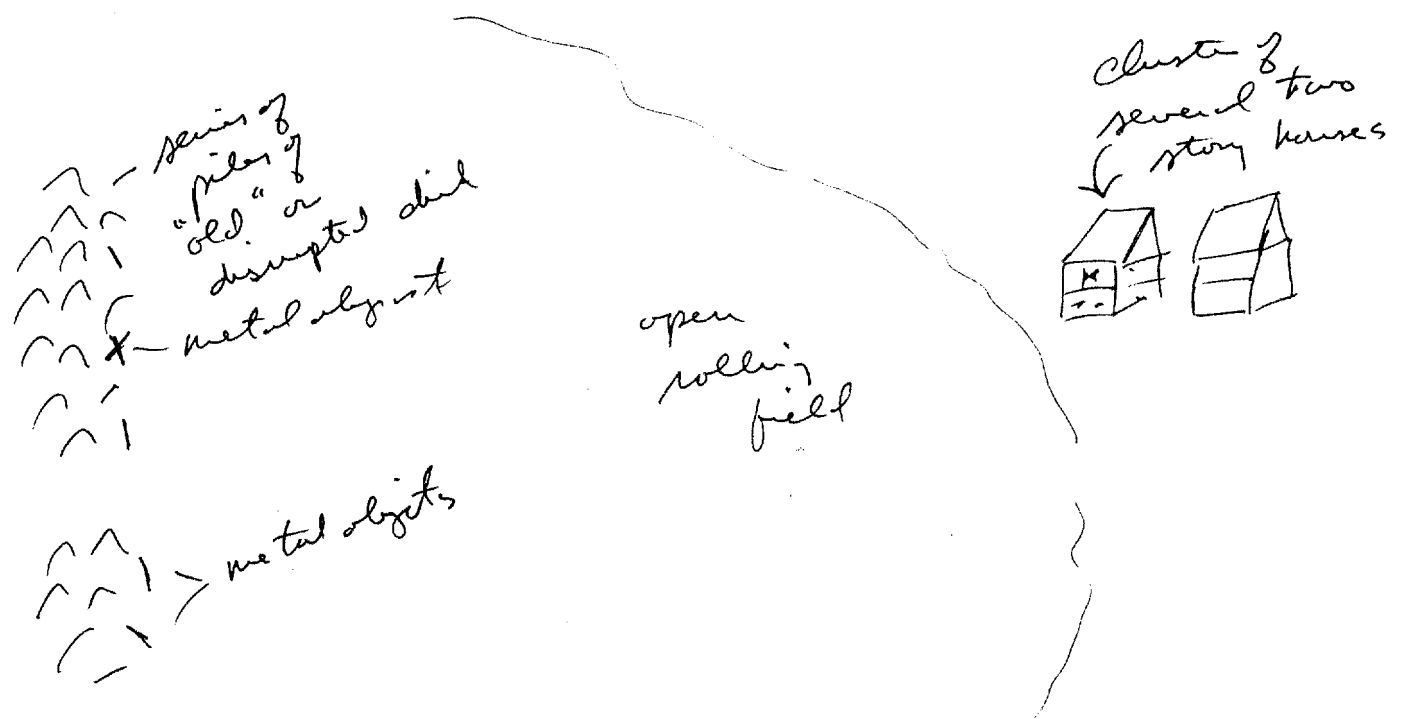 series of
piles of
"old" or
disrupted dirt
metal object
metal objects
open
rolling
field
cluster of
several two
story houses